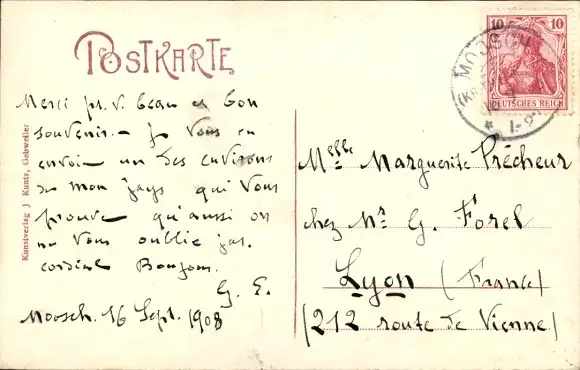 POSTKARTE
10 10
DEUTSCHES REICH
MOOSCH
Kunstverlag J Kuntz, Gebweiler
Merci pr. v. beau et bon
souvenir.- je vous en
envoie un des environs
de mon pays qui vous
prouve qu'aussi on
ne vous oublie pas.
cordial Bonjour.
G. E.
Moosch. 16 Sept. 1908
Melle Marguerite Prêcheur
chez Mr G. Forel
Lyon (France)
(212 route de Vienne)